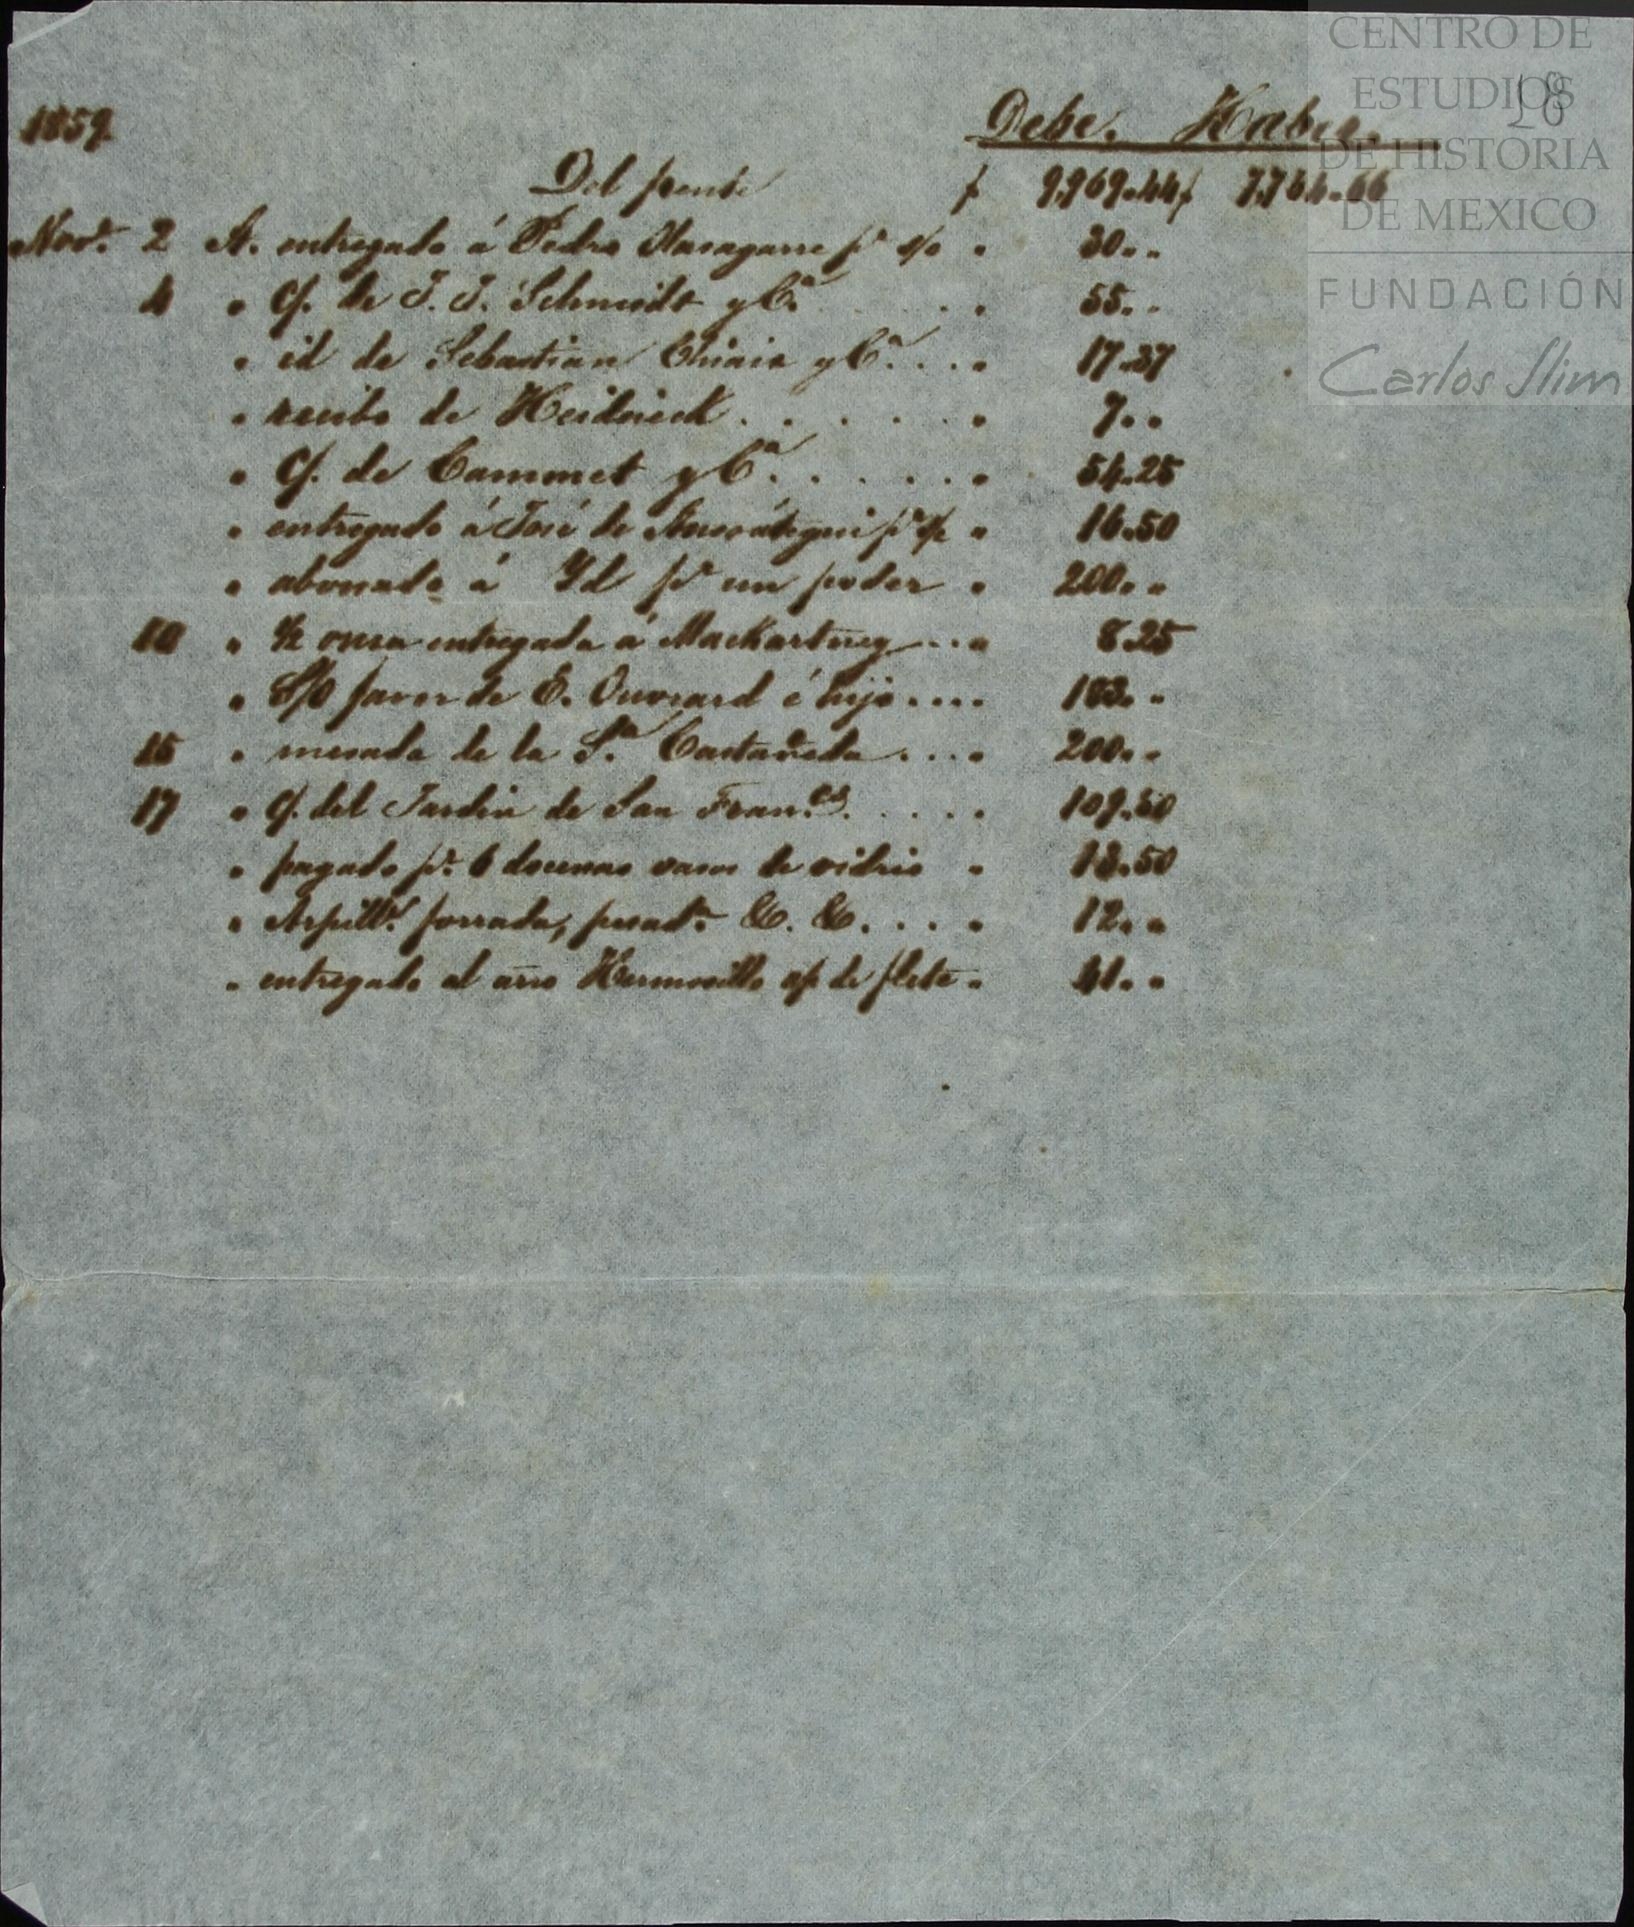 CENTRO DE
ESTUDIOS
DE HISTORIA
DE MEXICO
FUNDACIÓN
Carlos Slim
28
1859
Debe. Haber.
Del frente $ 9,969.44 $ 7,764.66
Nove. 2 A. entregado á Pedro Olasagarre pr s/o " 30 " "
4 " C/. de J. J. Schmidt y Ca. . . . . " 55 " "
" id de Sebastian y Ca. . . . " 17.37
" recibo de . . . . . . " 7 " "
" C/. de Cammet y Ca. . . . . . " 54.25
" entregado á José de pr " 16.50
" abonado á Yd pr un poder " 200 " "
10 " ½ onza entregada á Mackartney . . . " 8.25
" S/O favor de E. Ouvrard é hijo . . . . 103 " "
15 " mesada de la Sa. Castañeda . . . " 200 " "
17 " C/. del Jardin de San Franco. . . . . 109.50
" pagado pr. 6 docenas vasos de vidrio " 13.50
" Arpilla. forrada, &. &. . . . " 12 " "
" entregado al arro Hermosillo a/c de flete " 41 " "